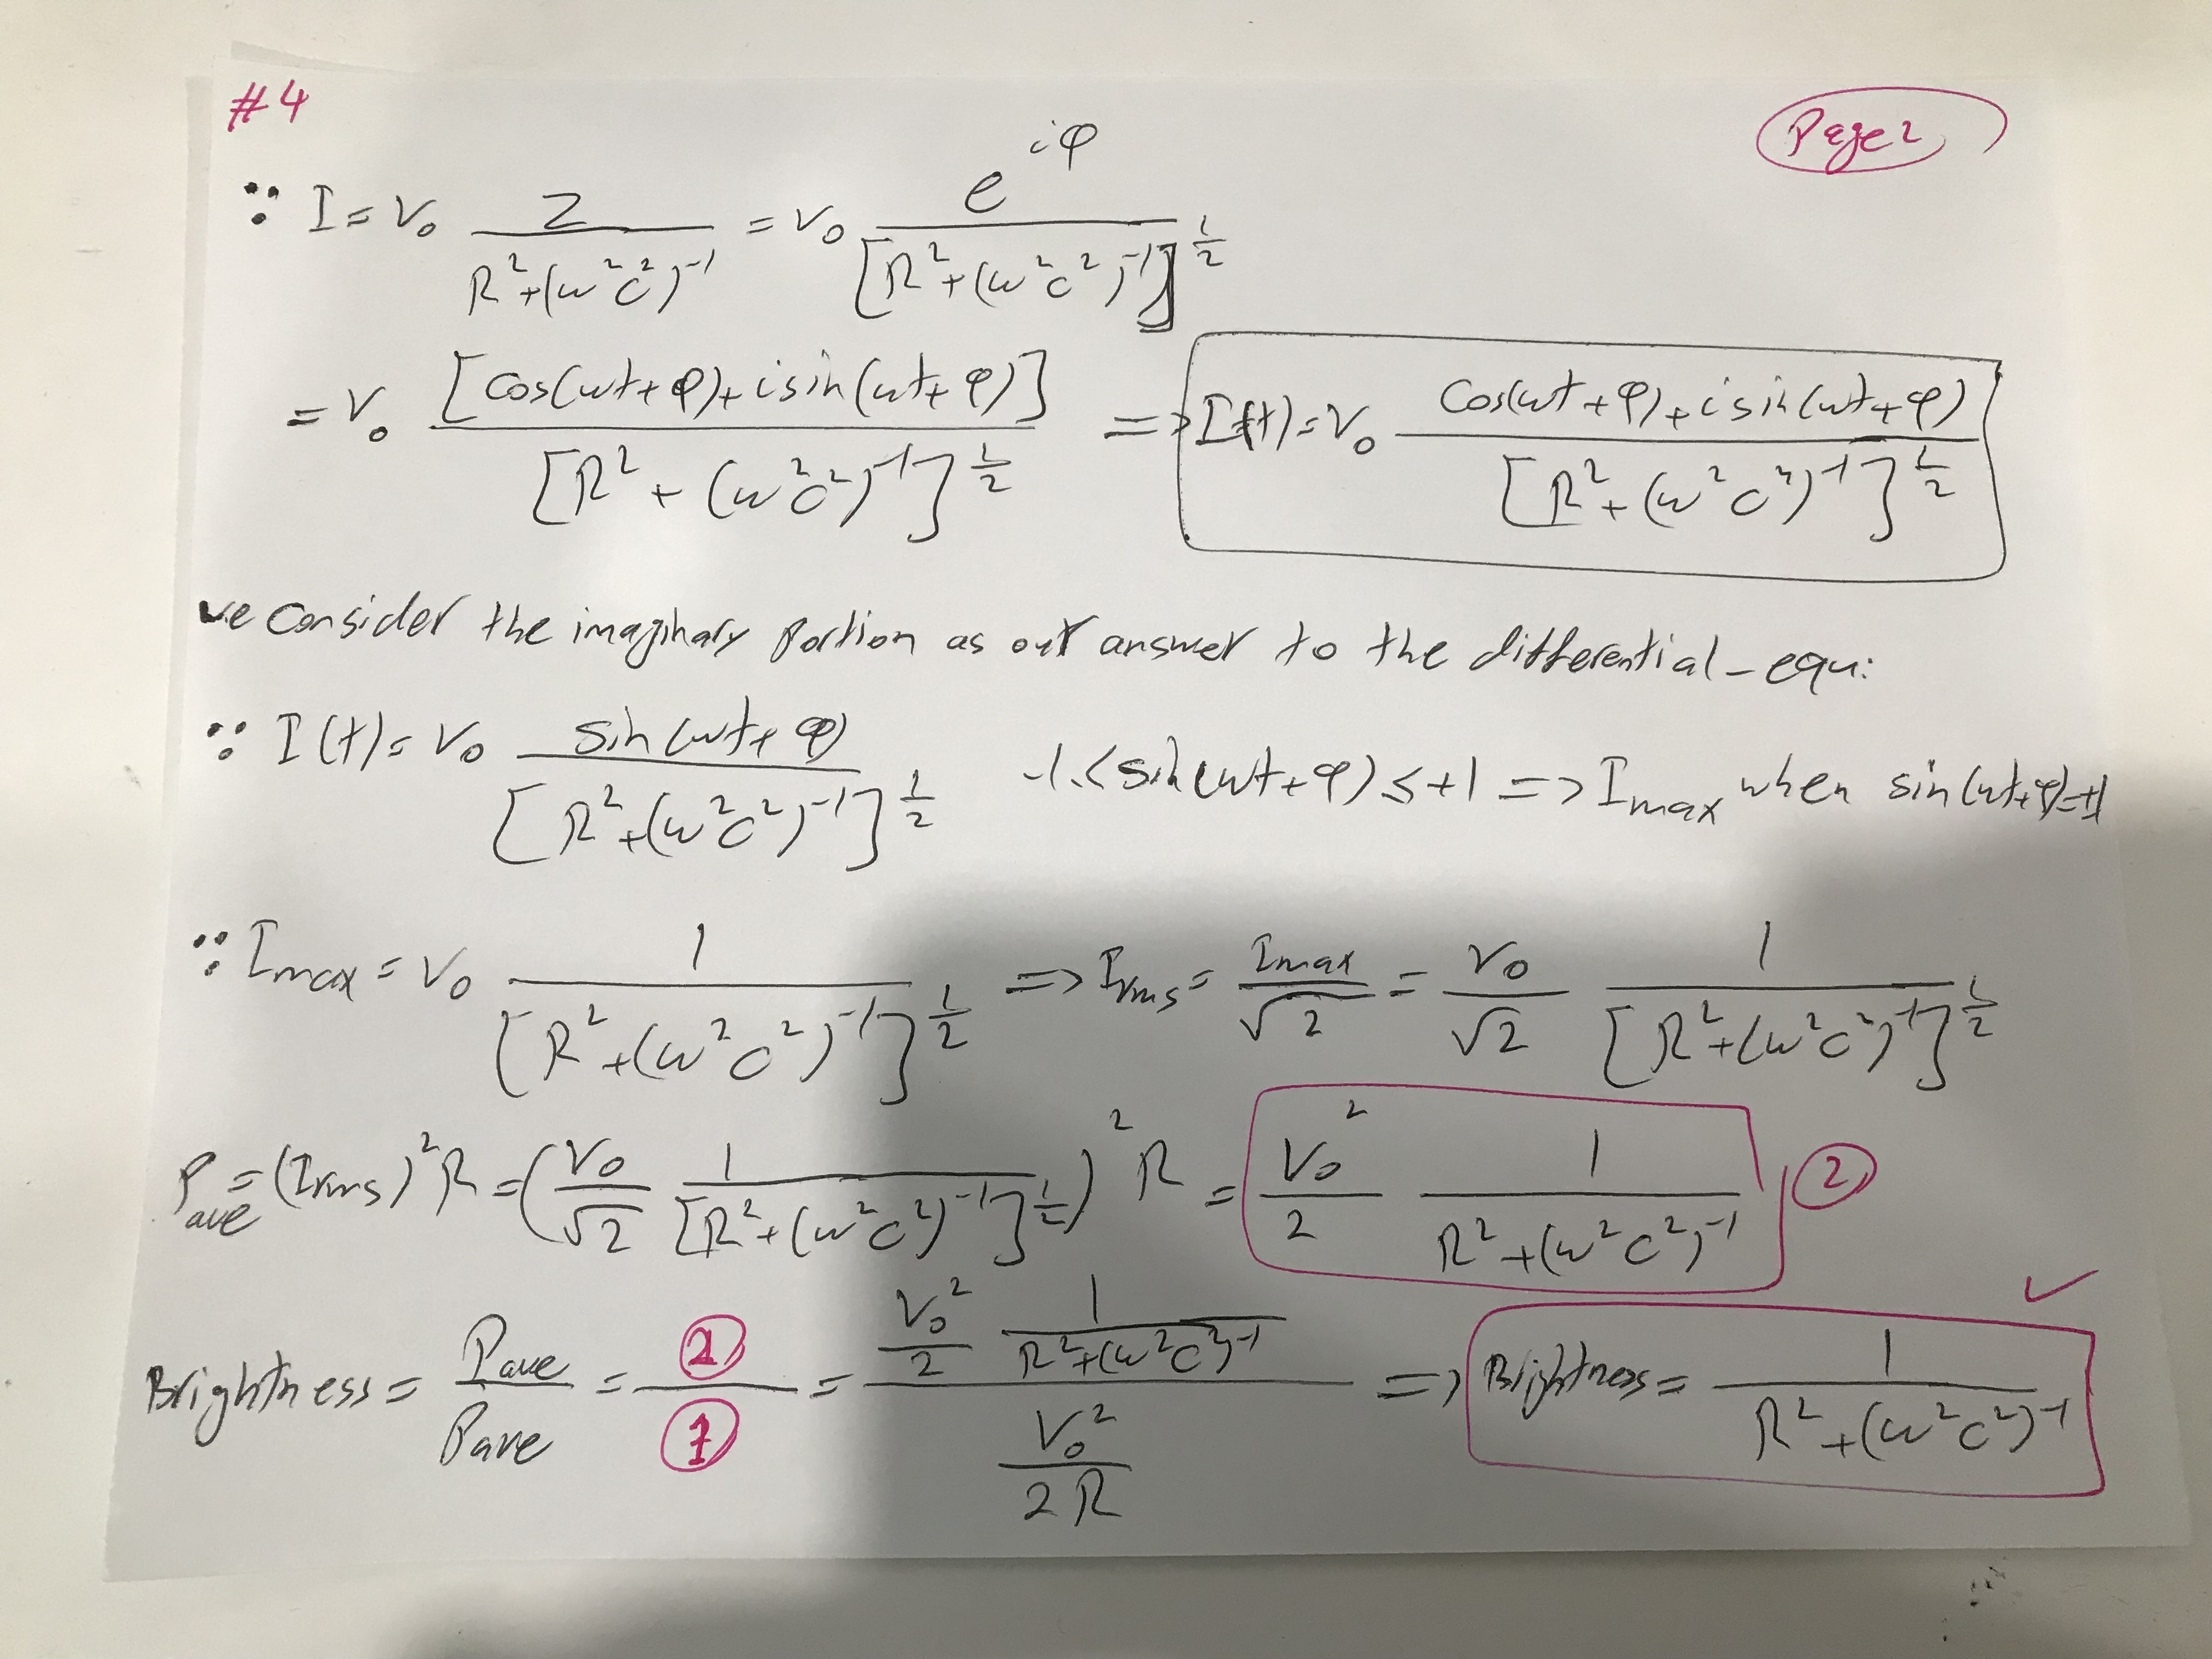 #4
Page 2
∵ I = V₀ Z / (R²+(ω²c²)⁻¹) = V₀ e^{iφ} / [R²+(ω²c²)⁻¹]^{1/2}
= V₀ [cos(ωt+φ)+i sin(ωt+φ)] / [R²+(ω²c²)⁻¹]^{1/2} => I(t) = V₀ (cos(ωt+φ)+i sin(ωt+φ)) / [R²+(ω²c²)⁻¹]^{1/2}
we consider the imaginary portion as our answer to the differential-equ:
∵ I(t) = V₀ sin(ωt+φ) / [R²+(ω²c²)⁻¹]^{1/2} -1 ≤ sin(ωt+φ) ≤ +1 => I_max when sin(ωt+φ)=+1
∵ I_max = V₀ 1 / [R²+(ω²c²)⁻¹]^{1/2} => I_rms = I_max/√2 = V₀/√2 1 / [R²+(ω²c²)⁻¹]^{1/2}
P_ave = (I_rms)² R = (V₀/√2 1 / [R²+(ω²c²)⁻¹]^{1/2})² R = V₀²/2 1 / (R²+(ω²c²)⁻¹) ②
Brightness = P_ave / P_ave = ② / ① = (V₀²/2 1 / (R²+(ω²c²)⁻¹)) / (V₀²/2R) => Brightness = 1 / (R²+(ω²c²)⁻¹) ✓